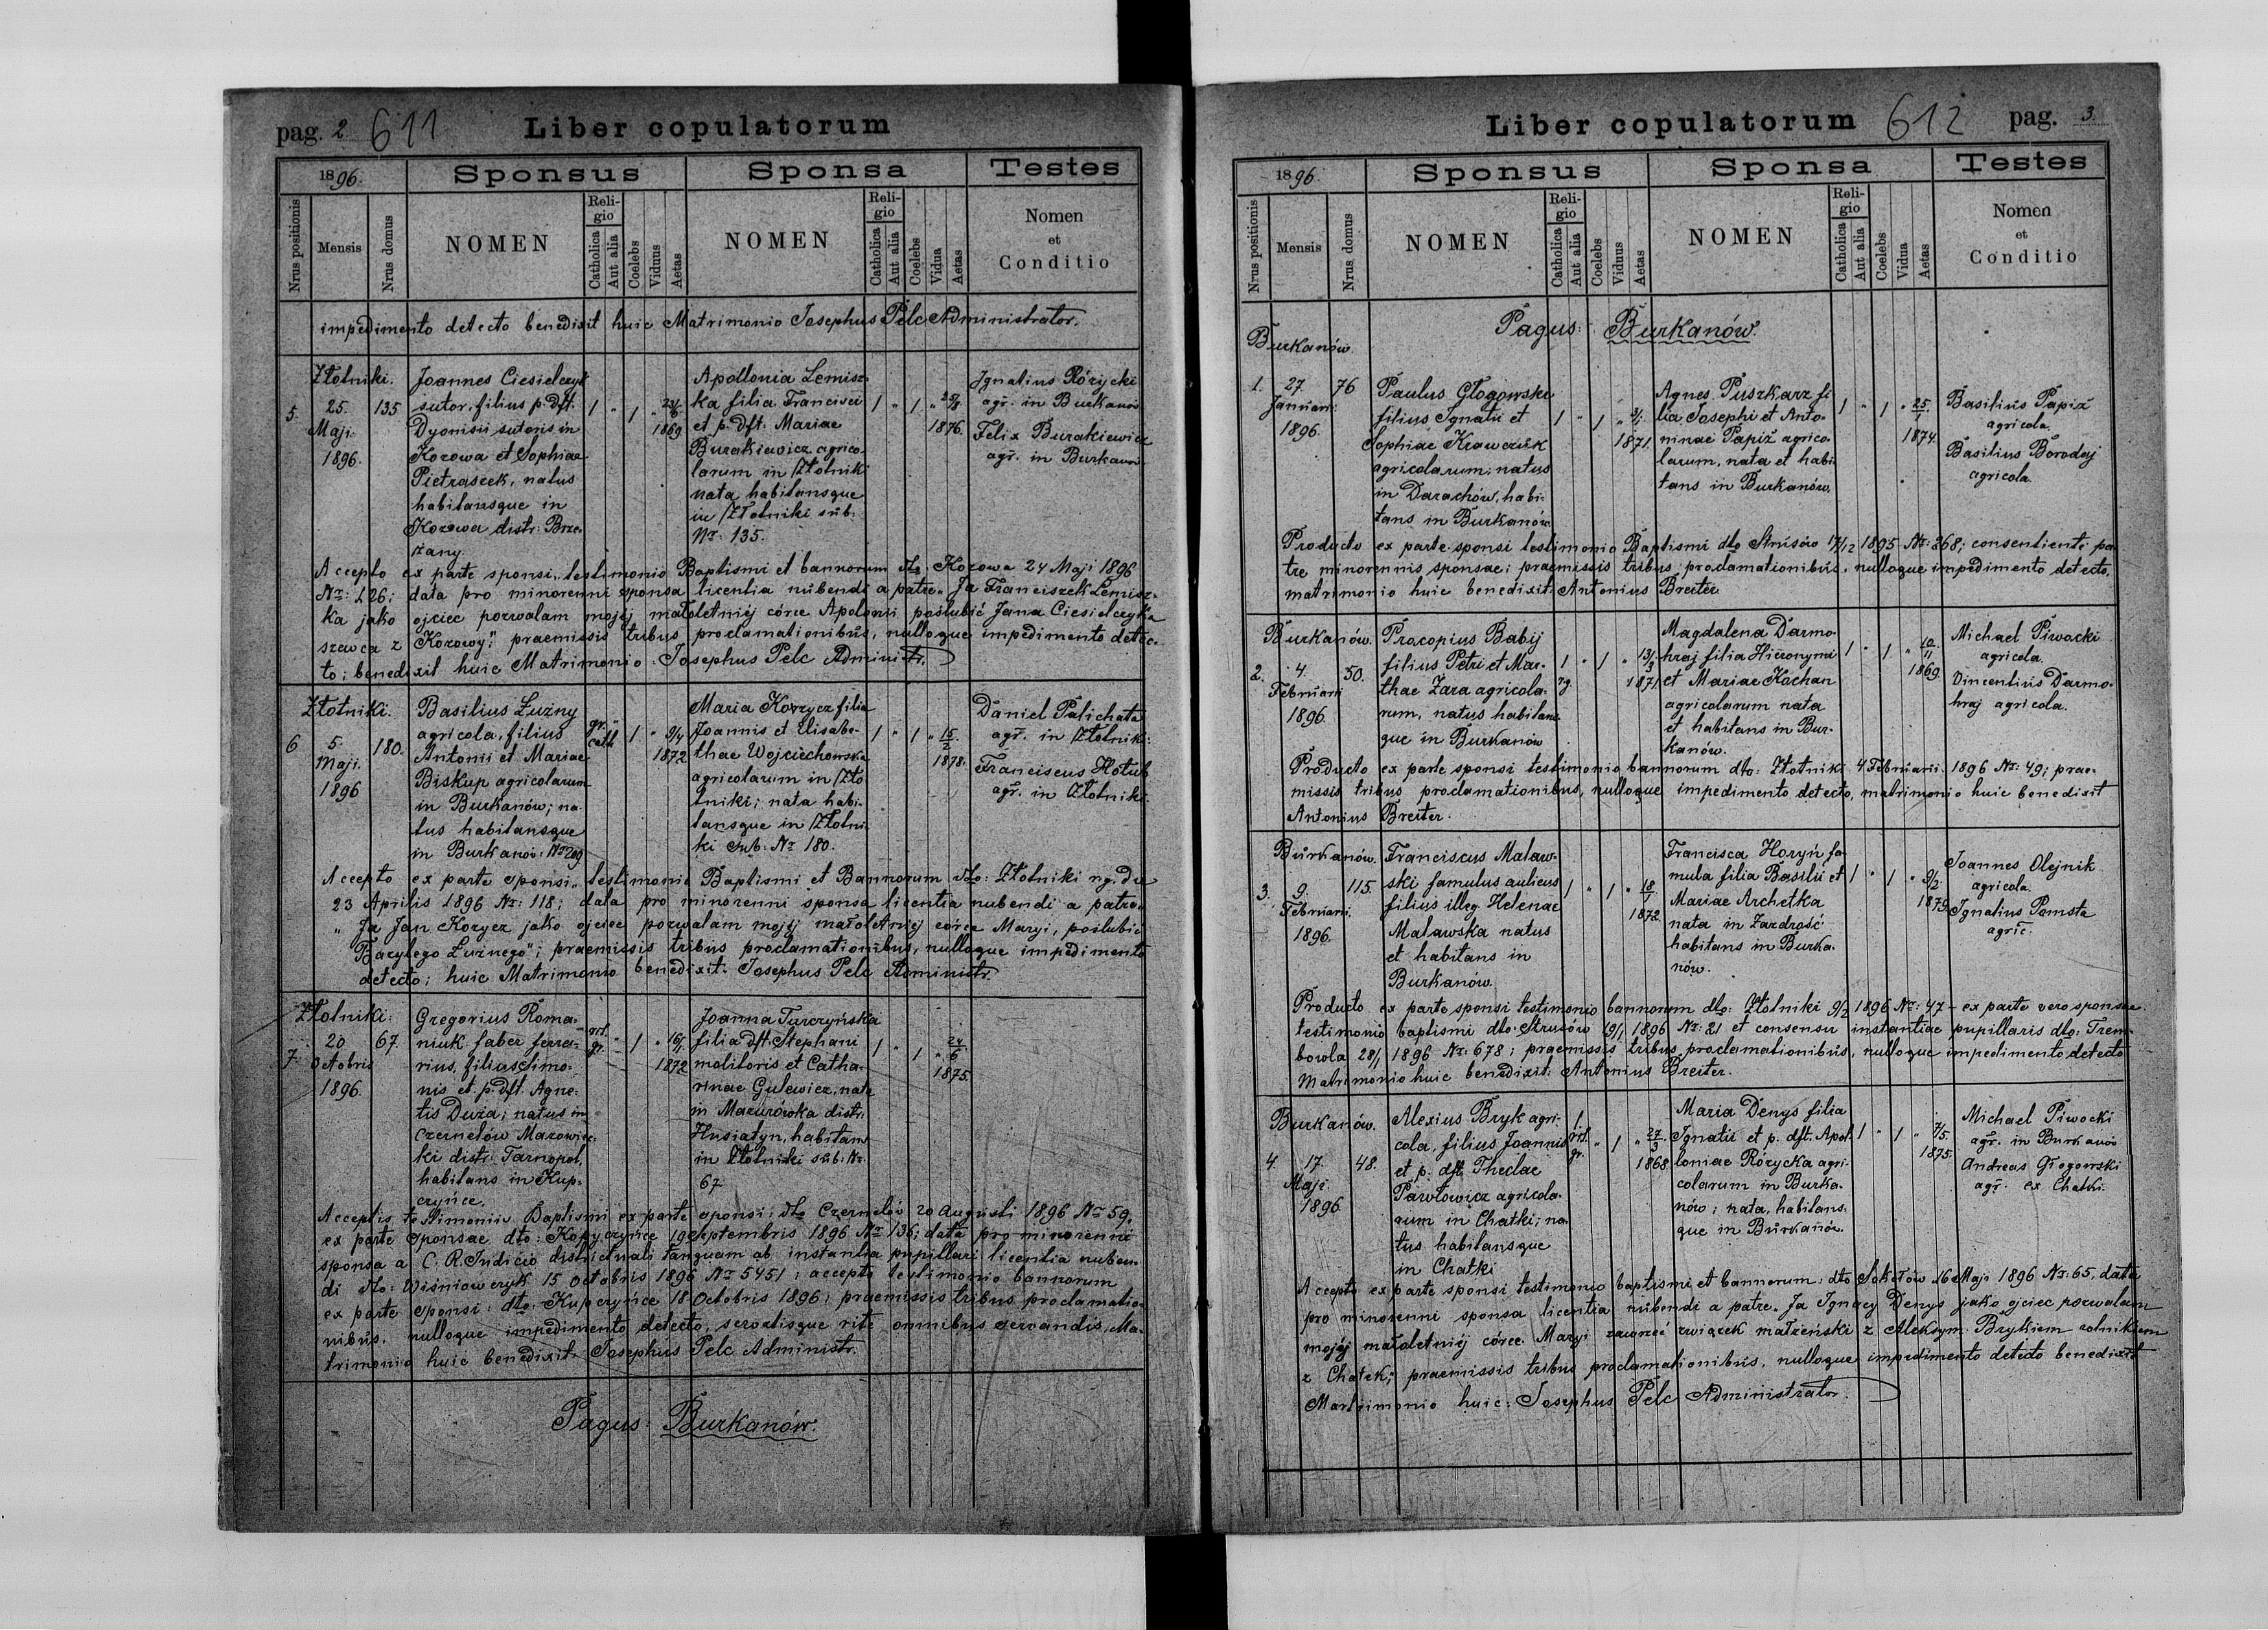 pag. 2 611 Liber copulatorum
1896. Sponsus Sponsa Testes
Nrus positionis Mensis Nrus domus NOMEN Religio Catholica Aut alia Coelebs Viduus Aetas NOMEN Religio Catholica Aut alia Coelebs Vidua Aetas Nomen et Conditio
impedimento detecto benedixit huic Matrimonio Josephus Pelc Administrator.
Złotniki.
5. 25. Maji 1896. 135
Joannes Ciesielczyk
sutor, filius p. dft.
Dyonisii sutoris in
Kozowa et Sophiae
Pietraszek, natus
habitansque in
Kozowa distr: Brze-
żany.
1 " 1 " 1869
Apollonia Lemisz-
ka filia Francisci
et p. dft. Mariae
Burakiewicz agrico-
larum in Złotniki
nata habitansque
in Złotniki sub:
Nr: 135.
1 " 1 " 1876.
Ignatius Różycki
agr. in Burkanów
Felix Burakiewicz
agr. in Burkanów
Accepto ex parte sponsi testimonio Baptismi et bannorum dto: Kozowa 24 Maji 1896
Nr: 426; data pro minorenni sponsa licentia nubendi a patre „Ja Franciszek Lemisz-
ka jako ojciec pozwalam mojéj małoletniéj córce Apolonii poślubić Jana Ciesielczyka
szewca z Kozowy;" praemissis tribus proclamationibus, nulloque impedimento detec-
to; benedixit huic Matrimonio Josephus Pelc Administr.
Złotniki.
6 5. Maji. 1896 180.
Basilius Łużny
agricola, filius
Antonii et Mariae
Biskup agricolarum
in Burkanów; na-
tus habitansque
in Burkanów: Nr 209
gr. cath " 1 " 9/4 1872
Maria Korzycz filia
Joannis et Elisabe-
thae Wojciechowska
agricolarum in Zło-
tniki; nata habi-
tansque in Złotni-
ki sub: Nr 180.
1 " 1 " 15/2 1878.
Daniel Palichata
agr. in Złotniki
Franciscus Hołub
agr. in Złotniki
Accepto ex parte sponsi testimonio Baptismi et Bannorum dto: Złotniki rg. die
23 Aprilis 1896 Nr: 118; data pro minorenni sponsa licentia nubendi a patre
„Ja Jan Korycz jako ojciec pozwalam mojéj małoletniéj córce Maryi, poślubić
Bazylego Łużnego"; praemissis tribus proclamationibus, nulloque impedimento
detecto; huic Matrimonio benedixit. Josephus Pelc Administr.
Złotniki:
7. 20. Octobris 1896. 67.
Gregorius Roma-
niuk faber ferra-
rius, filius Simo-
nis et p. dft. Agne-
tis Duża; natus in
Czernelów Mazowiec-
ki distr: Tarnopol,
habitans in Kup-
czyńce.
rit. gr. " 1 " 16/1 1872
Joanna Turczyńska
filia dft. Stephani
molitoris et Catha-
rinae Gulewicz, nata
in Mazurówka distr:
Husiatyn, habitans
in Złotniki sub: Nr.
67
1 " 1 " 24/6 1875.
Acceptis testimoniis Baptismi ex parte sponsi: dto Czernelów 20 Augusti 1896 Nr 59,
ex parte sponsae dto: Kopyczyńce 19 Septembris 1896 Nr 136; data pro minorenni
sponsa a C. R. Judicio districtuali tanquam ab instantia pupillari licentia nuben-
di dto: Wiśniowczyk 15 Octobris 1896 Nr 5451; accepto testimonio bannorum
ex parte sponsi: dto: Kupczyńce 18 Octobris 1896; praemissis tribus proclamatio-
nibus, nulloque impedimento detecto, servatisque rite omnibus servandis, Ma-
trimonio huic benedixit Josephus Pelc Administr.
Pagus: Burkanów.
Liber copulatorum 612 pag. 3.
1896. Sponsus Sponsa Testes
Nrus positionis Mensis Nrus domus NOMEN Religio Catholica Aut alia Coelebs Viduus Aetas NOMEN Religio Catholica Aut alia Coelebs Vidua Aetas Nomen et Conditio
Pagus: Burkanów.
Burkanów
1. 27. Januarii 1896. 76
Paulus Głogowski
filius Ignatii et
Sophiae Krawczuk
agricolarum; natus
in Darachów, habi-
tans in Burkanów
1 " 1 " 1871.
Agnes Puszkarz fi-
lia Josephi et Anto-
ninae Papiż agrico-
larum, nata et habi-
tans in Burkanów.
1 " 1 " 25/1 1874.
Basilius Papiż
agricola.
Basilius Borodaj
agricola.
Producto ex parte sponsi testimonio Baptismi dto Strusów 17/12 1895 Nr: 368; consentiente pa-
tre minorennis sponsae; praemissis tribus proclamationibus, nulloque impedimento detecto,
matrimonio huic benedixit. Antonius Breiter.
Burkanów.
2. 4. Februarii 1896. 50.
Procopius Babij
filius Petri et Mar-
thae Zara agricola-
rum, natus habitans-
que in Burkanów
1 rg. " 1 " 13/3 1871.
Magdalena Darmo-
hraj filia Hieronymi
et Mariae Kochan
agricolarum nata
et habitans in Bur-
kanów.
1 " 1 " 10/11 1869.
Michael Piwocki
agricola.
Vincentius Darmo-
hraj agricola.
Producto ex parte sponsi testimonio bannorum dto: Złotniki 4 Februarii 1896 Nr: 49; prae-
missis tribus proclamationibus, nulloque impedimento detecto, matrimonio huic benedixit
Antonius Breiter.
Burkanów.
3. 9. Februarii. 1896. 115.
Franciscus Malaw-
ski famulus aulicus
filius illeg. Helenae
Malawska natus
et habitans in
Burkanów.
1 " 1 " 18/1 1872.
Francisca Horyń fa-
mula filia Basilii et
Mariae Archetka
nata in Zazdrość
habitans in Burka-
nów.
1 " 1 " 9/2 1879.
Joannes Olejnik
agricola.
Ignatius Pomsta
agric.
Producto ex parte sponsi testimonio bannorum dto: Złotniki 9/2 1896 Nr: 47 – ex parte vero sponsae
testimonio baptismi dto. Strusów 19/1 1896 Nr: 21 et consensu instantiae pupillaris dto: Trem-
bowla 28/1 1896 Nr: 678; praemissis tribus proclamationibus, nulloque impedimento detecto
Matrimonio huic benedixit: Antonius Breiter.
Burkanów.
4. 17. Maji 1896. 48.
Alexius Bryk agri-
cola, filius Joannis
et p. dft. Theclae
Pawłowicz agricola-
rum in Chatki; na-
tus habitansque
in Chatki
1. rit. gr. " 1 " 27/3 1868
Maria Denys filia
Ignatii et p. dft. Apol-
loniae Różycka agri-
colarum in Burka-
nów; nata, habitans-
que in Burkanów.
1 " 1 " 7/5. 1875.
Michael Piwocki
agr. in Burkanów
Andreas Głogowski
agr. ex Chatki.
Accepto ex parte sponsi testimonio baptismi et bannorum: dto Sokołów 16 Maji 1896 Nr: 65, data
pro minorenni sponsa licentia nubendi a patre „Ja Ignacy Denys jako ojciec pozwalam
mojéj małoletniéj córce Maryi zawrzeć związek małżeński z Aleksym Brykiem rolnikiem
z Chatek;" praemissis tribus proclamationibus, nulloque impedimento detecto benedixit
Martrimonio huic: Josephus Pelc Administrator.